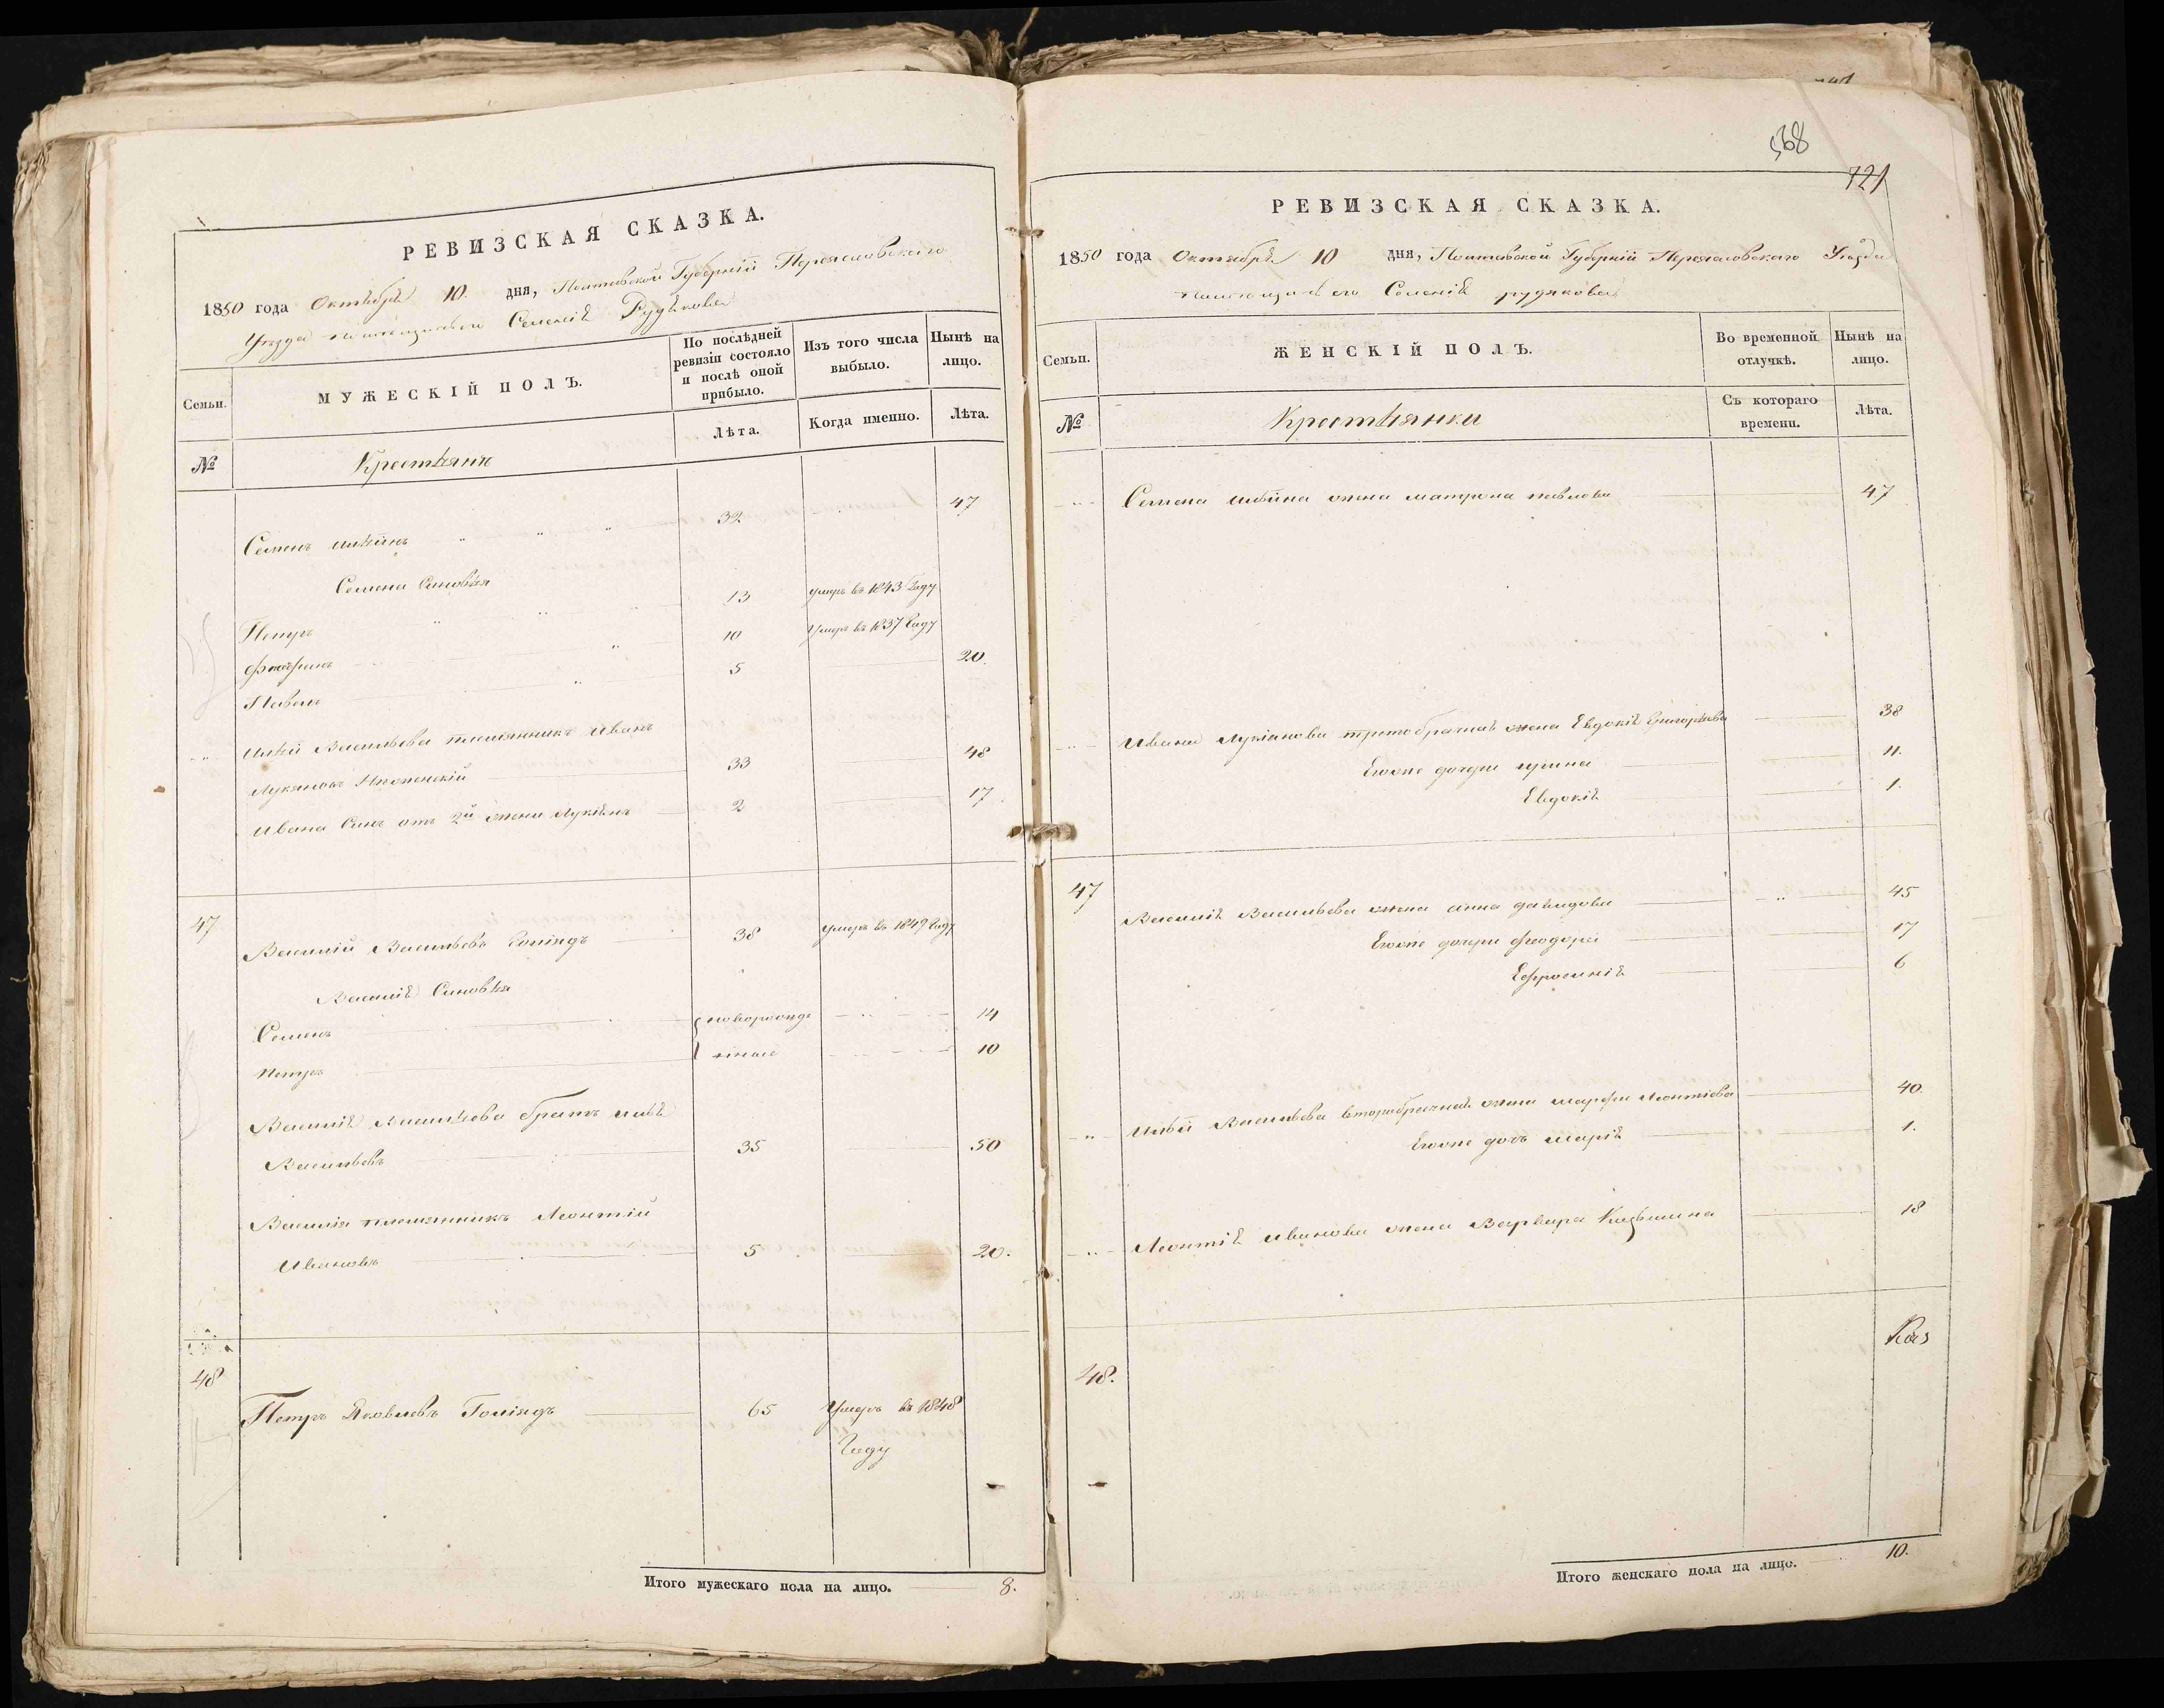 РЕВИЗСКАЯ СКАЗКА.
1850 года Октября 10. дня, Полтавской Губерніи Переяславскаго
Уѣзда Селенія Рудякова
Семьи.
МУЖЕСКІЙ ПОЛЪ.
По послѣдней ревизіи состояло и послѣ оной прибыло.
Изъ того числа выбыло.
Нынѣ на лицо.
№
Крестьянъ
Лѣта.
Когда именно.
Лѣта.
Семенъ Ильинъ 32 47
Семена Синовья
Петръ 13 умеръ въ 1843 Году
10 Умеръ въ 1837 Году
Павелъ 5 20.
Ильи Васильева племянникъ Иванъ
Лукяновъ 33 48
Ивана Синъ отъ 2й жени Лукіянъ 2 17
47 Василій Васильевъ Голіядъ 38 умеръ въ 1849 Году
Василія Синовья
Семенъ новорожде 14
Петръ нные 10
Василія Васильева братъ Илья
Васильевъ 35 50
Василія племянникъ Леонтій
Ивановъ 5 20.
48 Петръ Яковлевъ Голіядъ 65 Умеръ въ 1848
Году
Итого мужескаго пола на лицо. 8.
568
721
РЕВИЗСКАЯ СКАЗКА.
1850 года Октября 10 дня, Полтавской Губерніи Переяславскаго Уѣзда
Селенія рудякова
Семьи.
ЖЕНСКІЙ ПОЛЪ.
Во временной отлучкѣ.
Нынѣ на лицо.
№
Крестьянки
Съ котораго времени.
Лѣта.
Семена Ильина жена матрона павлова 47
Ивана Лукіянова третобрачная жена Евдокія Григорьева 38
Егоже дочери ирина 11.
Евдокія 1.
47 Василія Васильева жена анна давидова 45
Егоже дочери феодора 17
Ефросинія 6
Ильи Васильева второбрачная жена марфа Леонтіева 40.
Егоже дочь марія 1.
Леонтія Иванова жена Варвара Кузьмина 18
48.
Итого женскаго пола на лицо. 10.